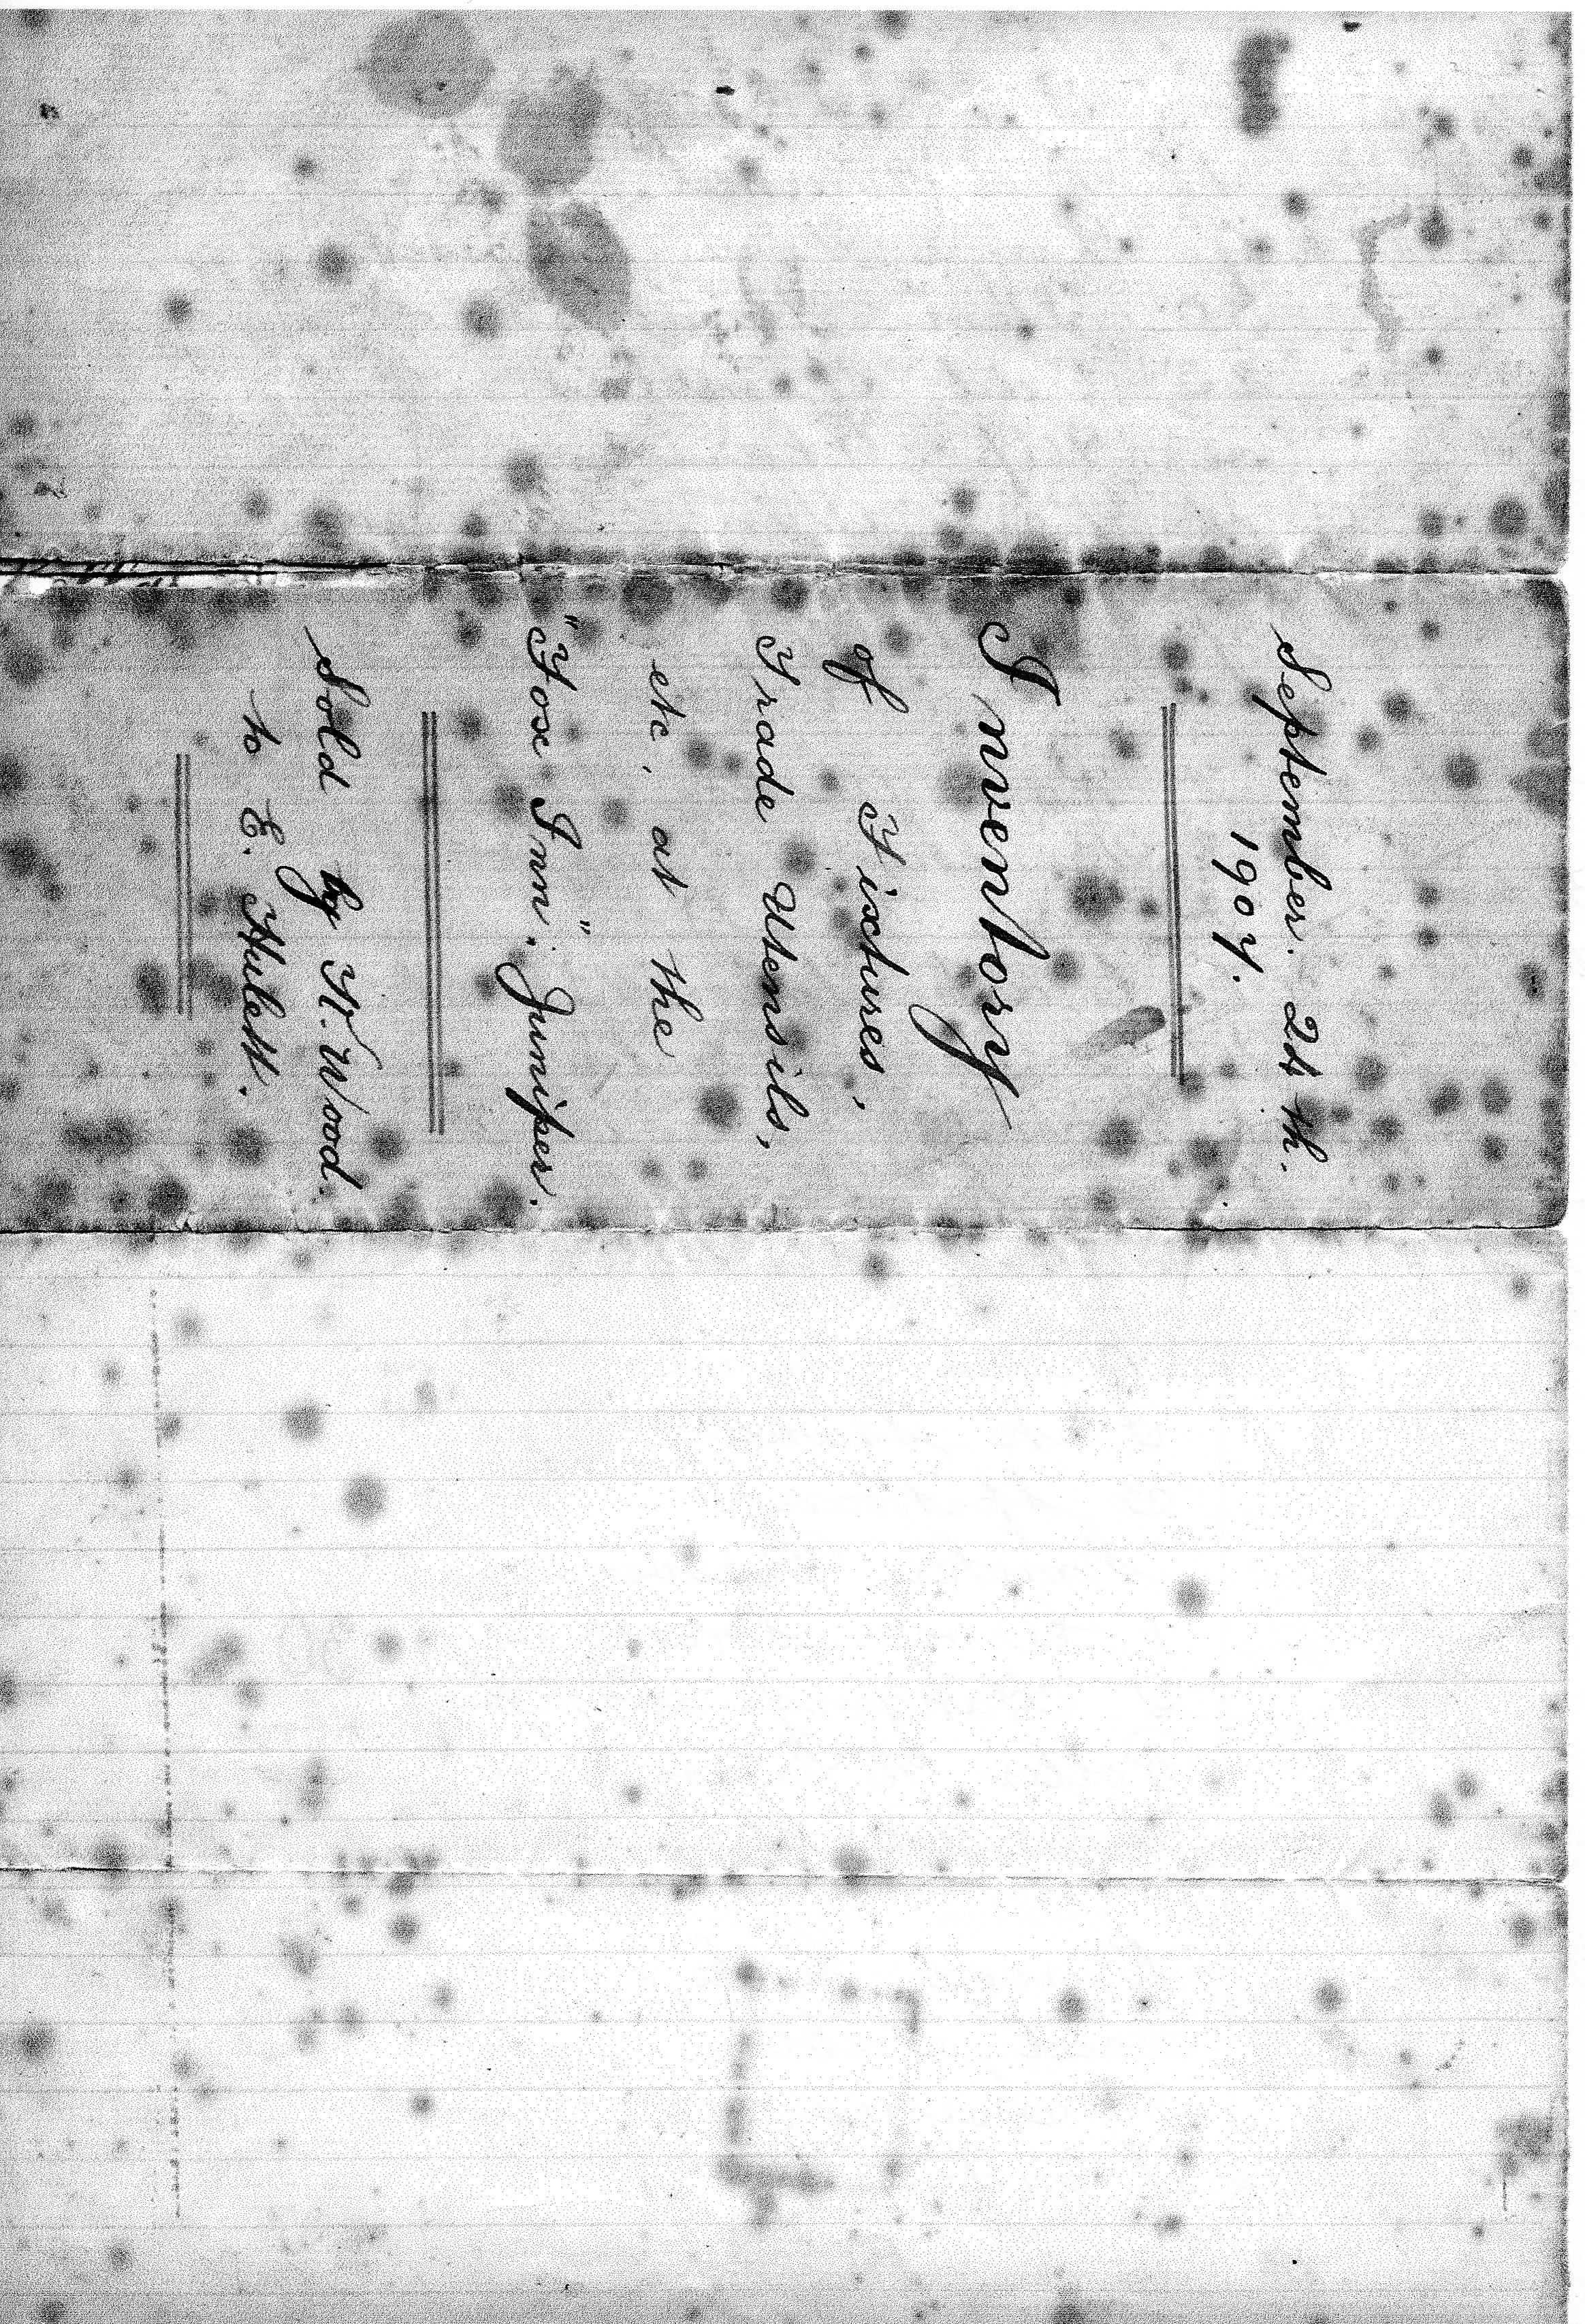 September. 24th.
1907.
Inventory
of Fixtures,
Trade Utensils,
etc, at the
"Fox Inn". Juniper.
Sold by H. Wood.
to E. Hulett.